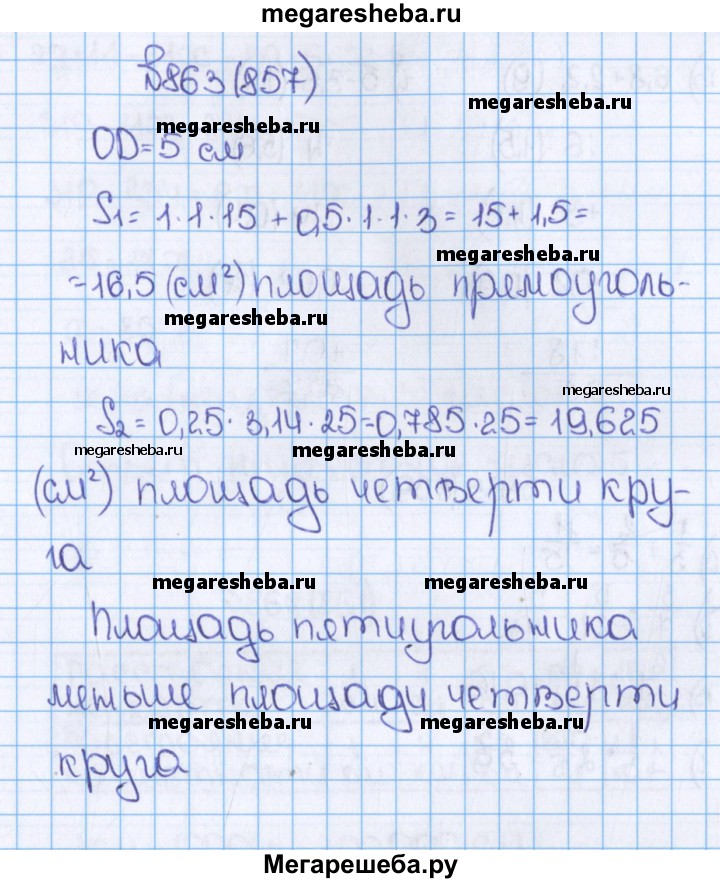 megaresheba.ru
№863 (857)
megaresheba.ru
megaresheba.ru
OD=5 см
S₁= 1·1·15 + 0,5·1·1·3 = 15 + 1,5=
megaresheba.ru
=16,5 (см²) площадь прямоуголь-
megaresheba.ru
ника
megaresheba.ru
S₂ = 0,25·3,14·25=0,785·25= 19,625
megaresheba.ru megaresheba.ru
(см²) площадь четверти кру-
га
megaresheba.ru megaresheba.ru
Площадь пятиугольника
меньше площади четверти
megaresheba.ru megaresheba.ru
круга
Мегарешеба.ру